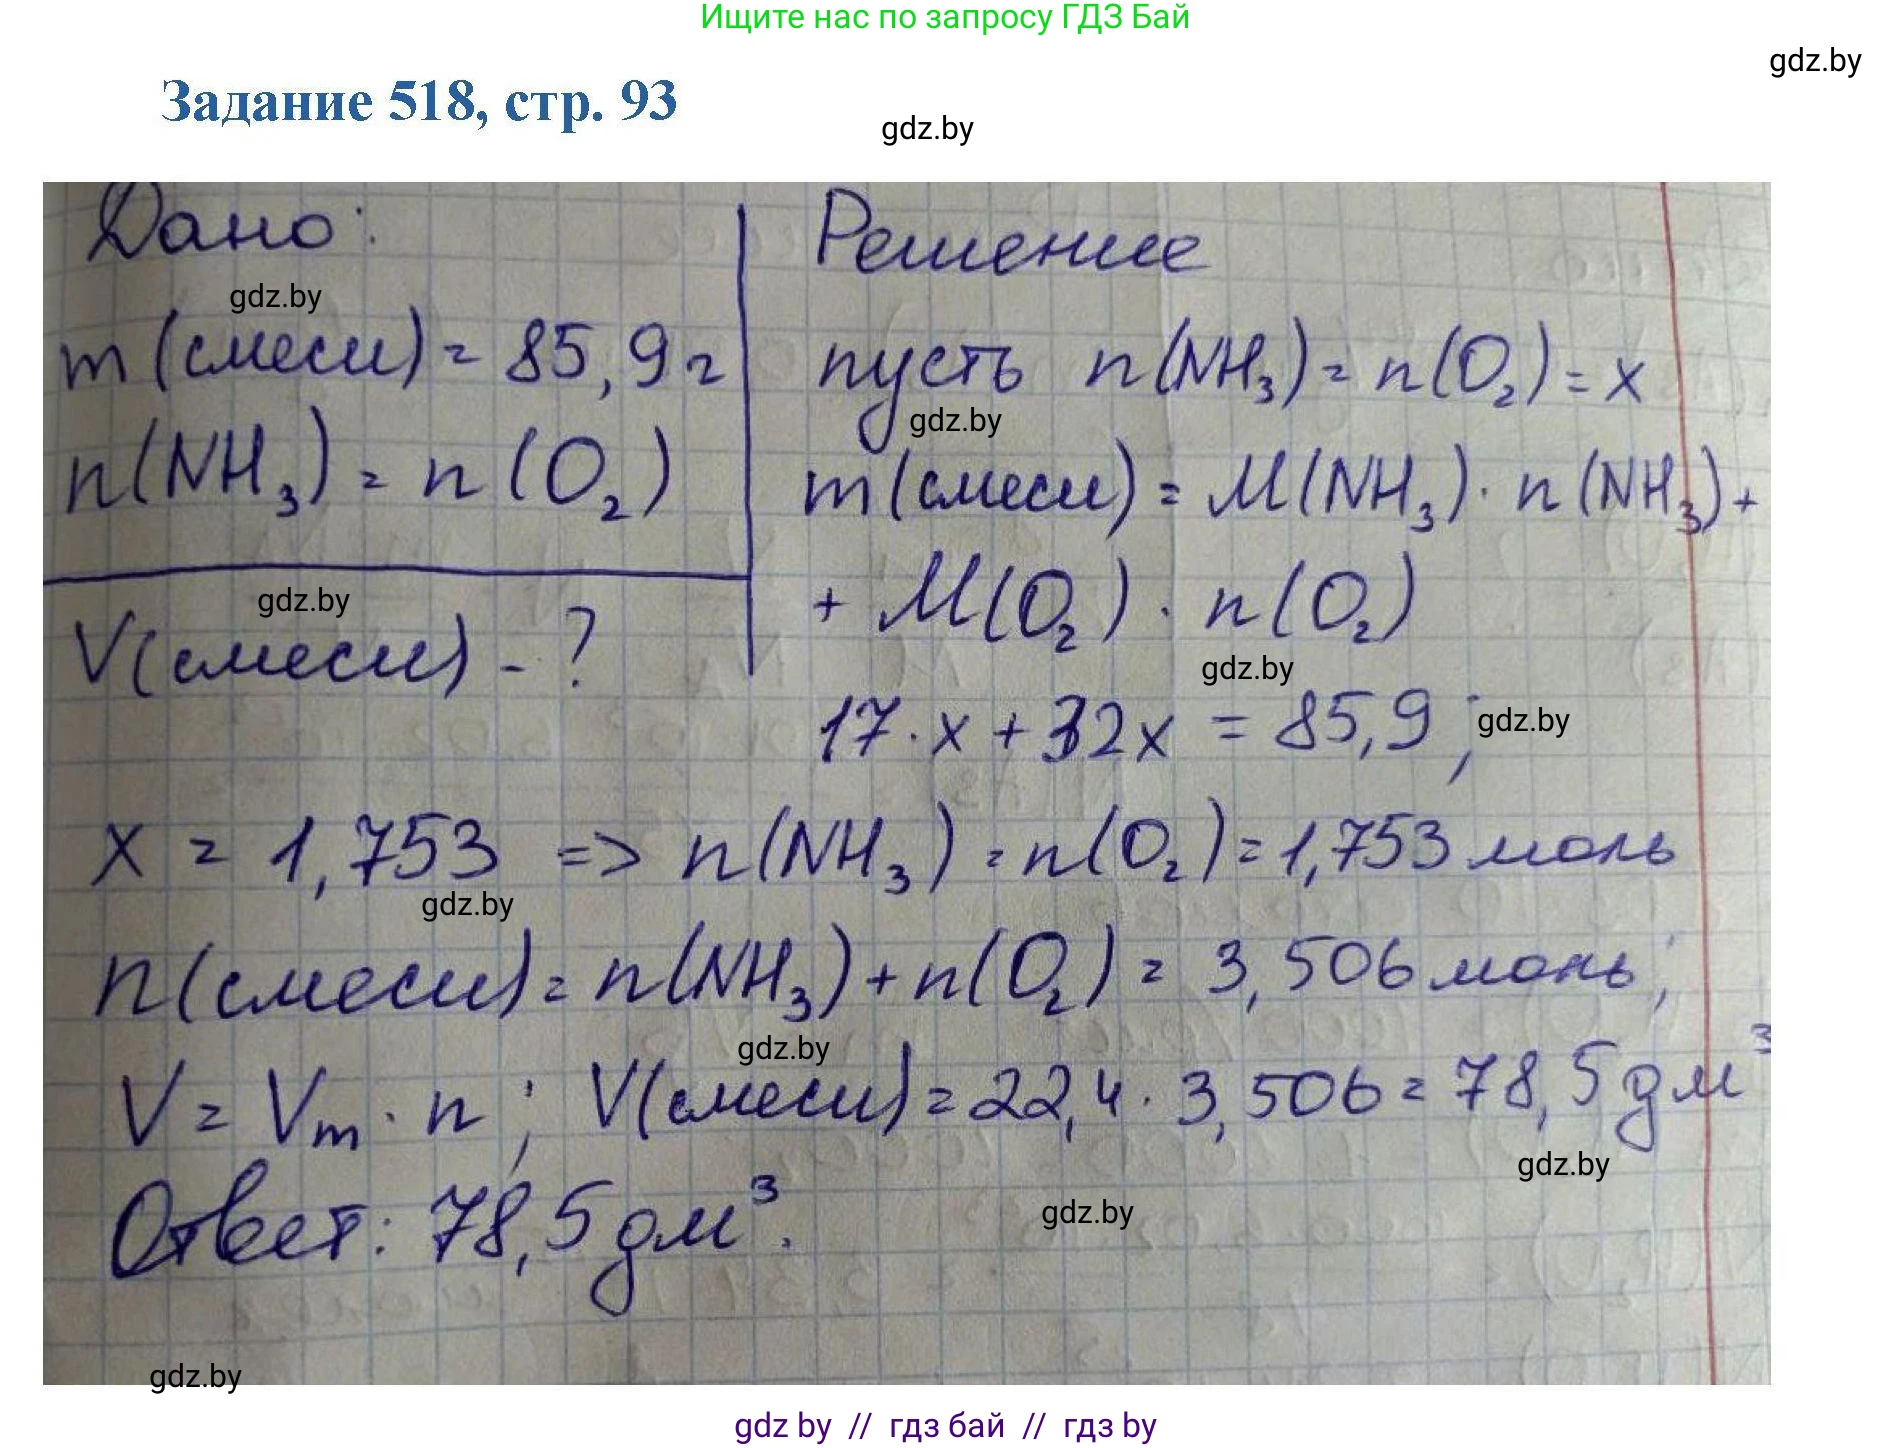 Ищите нас по запросу ГДЗ Бай
gdz.by
Задание 518, стр. 93
gdz.by
Дано:
Решение
gdz.by
m (смеси) = 85,9 г
пусть n(NH₃) = n(O₂) = x
gdz.by
n(NH₃) = n(O₂)
m(смеси) = M(NH₃) · n(NH₃) +
+ M(O₂) · n(O₂)
gdz.by
V(смеси) - ?
gdz.by
17 · x + 32x = 85,9 ;
gdz.by
x = 1,753 => n(NH₃) = n(O₂) = 1,753 моль
gdz.by
n(смеси) = n(NH₃) + n(O₂) = 3,506 моль ;
gdz.by
V = Vm · n ; V(смеси) = 22,4 · 3,506 = 78,5 дм³
gdz.by
Ответ: 78,5 дм³.
gdz.by
gdz.by
gdz by // гдз бай // гдз by